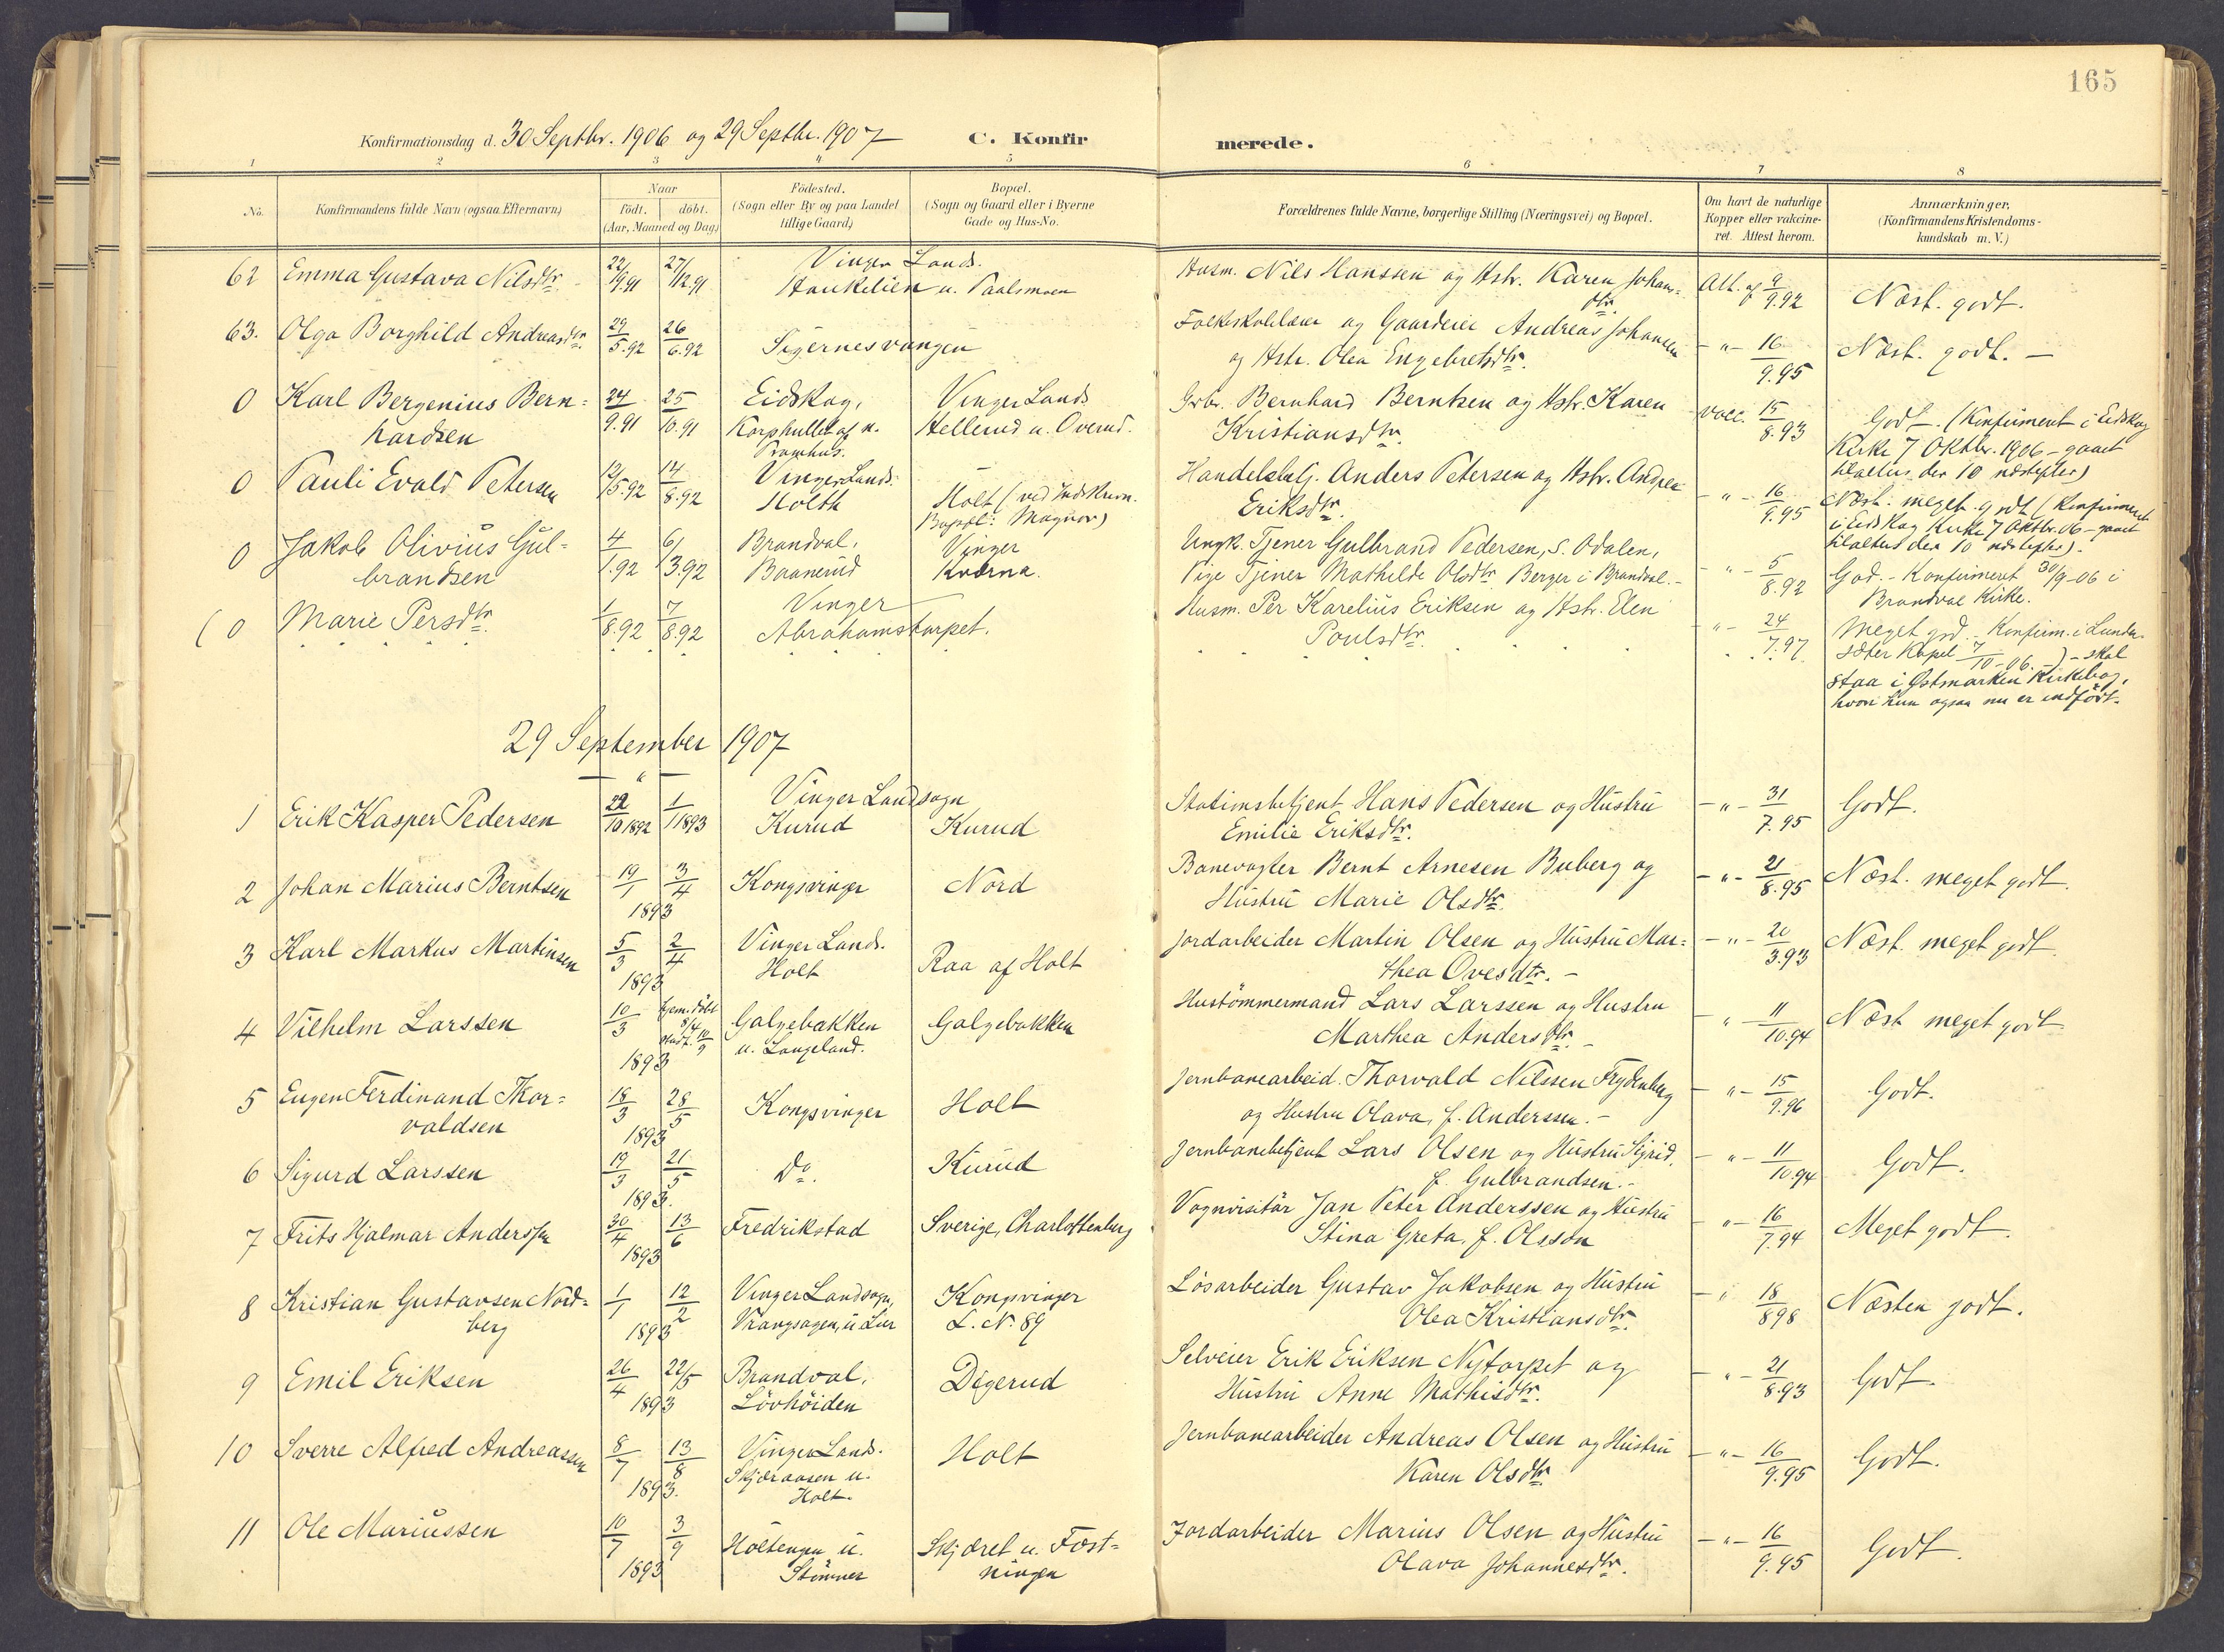 165
Konfirmationsdag d. 30 Septbr. 1906 og 29 Septbr. 1907
C. Konfir
merede.
1 2 3 4 5 6 7 8
No.
Konfirmandens fulde Navn (ogsaa Efternavn)
Naar
födt. döbt.
(Aar, Maaned og Dag)
Födested.
(Sogn eller By og paa Landet
tillige Gaard)
Bopæl.
(Sogn og Gaard eller i Byerne
Gade og Hus-No.
Forældrenes fulde Navne, borgerlige Stilling (Næringsvei) og Bopæl.
Om havt de naturlige
Kopper eller vakcine-
ret. Attest herom.
Anmærkninger.
(Konfirmandens Kristendoms-
kundskab m. V.)
62 Emma Gustava Nilsdtr. 27/12.91
Vinger Lands.
Haukelien u. Paalsmoen
Husm. Nils Hanssen og Hstr. Karen Johans-
dtr.
Att. af 9/9.92
Næst. godt.
63. Olga Borghild Andreasdtr. 29/5.92 26/6.92
Sigernesvangen
Folkeskolelærer og Gaardeier Andreas Johansen
og Hstr. Olea Engebretsdtr.
-"- 16/9.95
Næst. godt. -
0 Karl Bergenius Bern=
hardsen
24/9.91 25/10.91
Eidskog,
Korphullet af n.
Vinger Lands
Hellerud u. Overud.
Grbr. Bernhard Berntsen og Hstr. Karen
Kristiansdtr.
vacc. 15/8.93
Godt. (Konfirmeret i Eidskog
Kirke 7 Oktbr. 1906 - gaaet
tilalters der 10 næstefter)
0 Pauli Evald Petersen
12/5.92 14/8.92
Vinger Lands.
Holth
Holt (ved Indskrivn.
Bopæl: Magnor)
Handelsbetj. Anders Petersen og Hstr. Andrea
Eriksdtr.
-"- 16/9.95
Næst. meget godt (Konfirmeret
i Eidskog Kirke 7 Oktbr. 06 - gaaet
tilalters der 10 næstefter).
0 Jakob Olivius Gul=
brandsen
4/1.92 6/3.92
Brandval,
Baanerud
Vinger
Kværna.
Ungk. Tjener Gulbrand Pedersen, S. Odalen,
Pige Tjener Mathilde Olsdtr. Berger i Brandval. -
-"- 5/8.92
God. - Konfirmeret 30/9-06 i
Brandval Kirke.
(0 Marie Persdtr.
1/8.92 7/8.92
Vinger
Abrahamstorpet.
Husm. Per Karelius Eriksen og Hstr. Elen
Poulsdtr.
-"- 24/7.97
Meget god. - Konfirm. i Lunder-
sæter Kapel 7/10-06. -) - skal
staa i Østmarken Kirkebog,
hvori hun ogsaa nu er indført.
29 September 1907
1 Erik Kasper Pedersen
22/10 1892 1/1 1893
Vinger Landsogn
Kurud
Kurud
Stationsbetjent Hans Pedersen og Hustru
Emilie Eriksdtr.
-"- 31/7.95
Godt.
2 Johan Marius Berntsen
19/1 3/4
1893
Kongsvinger
Nord
Banevogter Bernt Arnesen Buberg og
Hustru Marie Olsdtr.
-"- 21/8.95
Næst. meget godt.
3 Karl Markus Martinsen
5/3 2/4
1893
Vinger Lands.
Holt
Raa af Holt
Jordarbeider Martin Olsen og Hustru Mar=
thea Ovesdtr. -
-"- 20/3.93
Næst. meget godt.
4 Vilhelm Larssen
10/3 hjem. döbt
8/4
1893
Galgebakken
u. Langeland.
Galgebakken
Hustömmermand Lars Larssen og Hustru
Marthea Andersdtr. -
-"- 11/10.94
Næst meget godt
5 Eugen Ferdinand Thor=
valdsen
18/3 28/5
1893
Kongsvinger
Holt
Jernbanearbeid. Thorvald Nilssen Frydenberg
og Hustru Olava, f. Anderssen. -
-"- 15/9.96
Godt.
6 Sigurd Larssen
19/3 21/5
1893.
Do.
Kurud
Jernbanebetjent Lars Olsen og Hustru Sigrid,
f. Gulbrandsen. -
-"- 11/10.94
Godt.
7 Frits Hjalmar Anderssen
30/4 13/6
1893
Fredrikstad
Sverige, Charlottenberg
Vognvisitör Jan Peter Anderssen og Hustru
Stina Greta, f. Olsson
-"- 16/7.94
Meget godt.
8 Kristian Gustavsen Nord=
berg
1/1 12/2
1893
Vinger Landsogn,
Vrangsagen, u Lier
Kongsvinger
L. N. 89
Lösarbeider Gustav Jakobsen og Hustru
Olea Kristiansdtr.
-"- 18/898
Næsten godt.
9 Emil Eriksen
26/4 22/5
1893
Brandval,
Lövhöiden
Digerud
Selveier Erik Eriksen Nytorpet og
Hustru Anne Mathisdtr.
-"- 21/8.93
Godt.
10 Sverre Alfred Andreassen
8/7 13/8
1893.
Vinger Lands.
Skjæraasen u.
Holt.
Holt
Jernbanearbeider Andreas Olsen og Hustru
Karen Olsdtr.
-"- 16/9.95
Godt.
11 Ole Mariussen
10/7 3/9
1893
Holtengen u.
Stömner
Skjæret u. Fæst=
ningen
Jordarbeider Marius Olsen og Hustru
Olava Johannesdtr.
-"- 16/9.95
Godt.